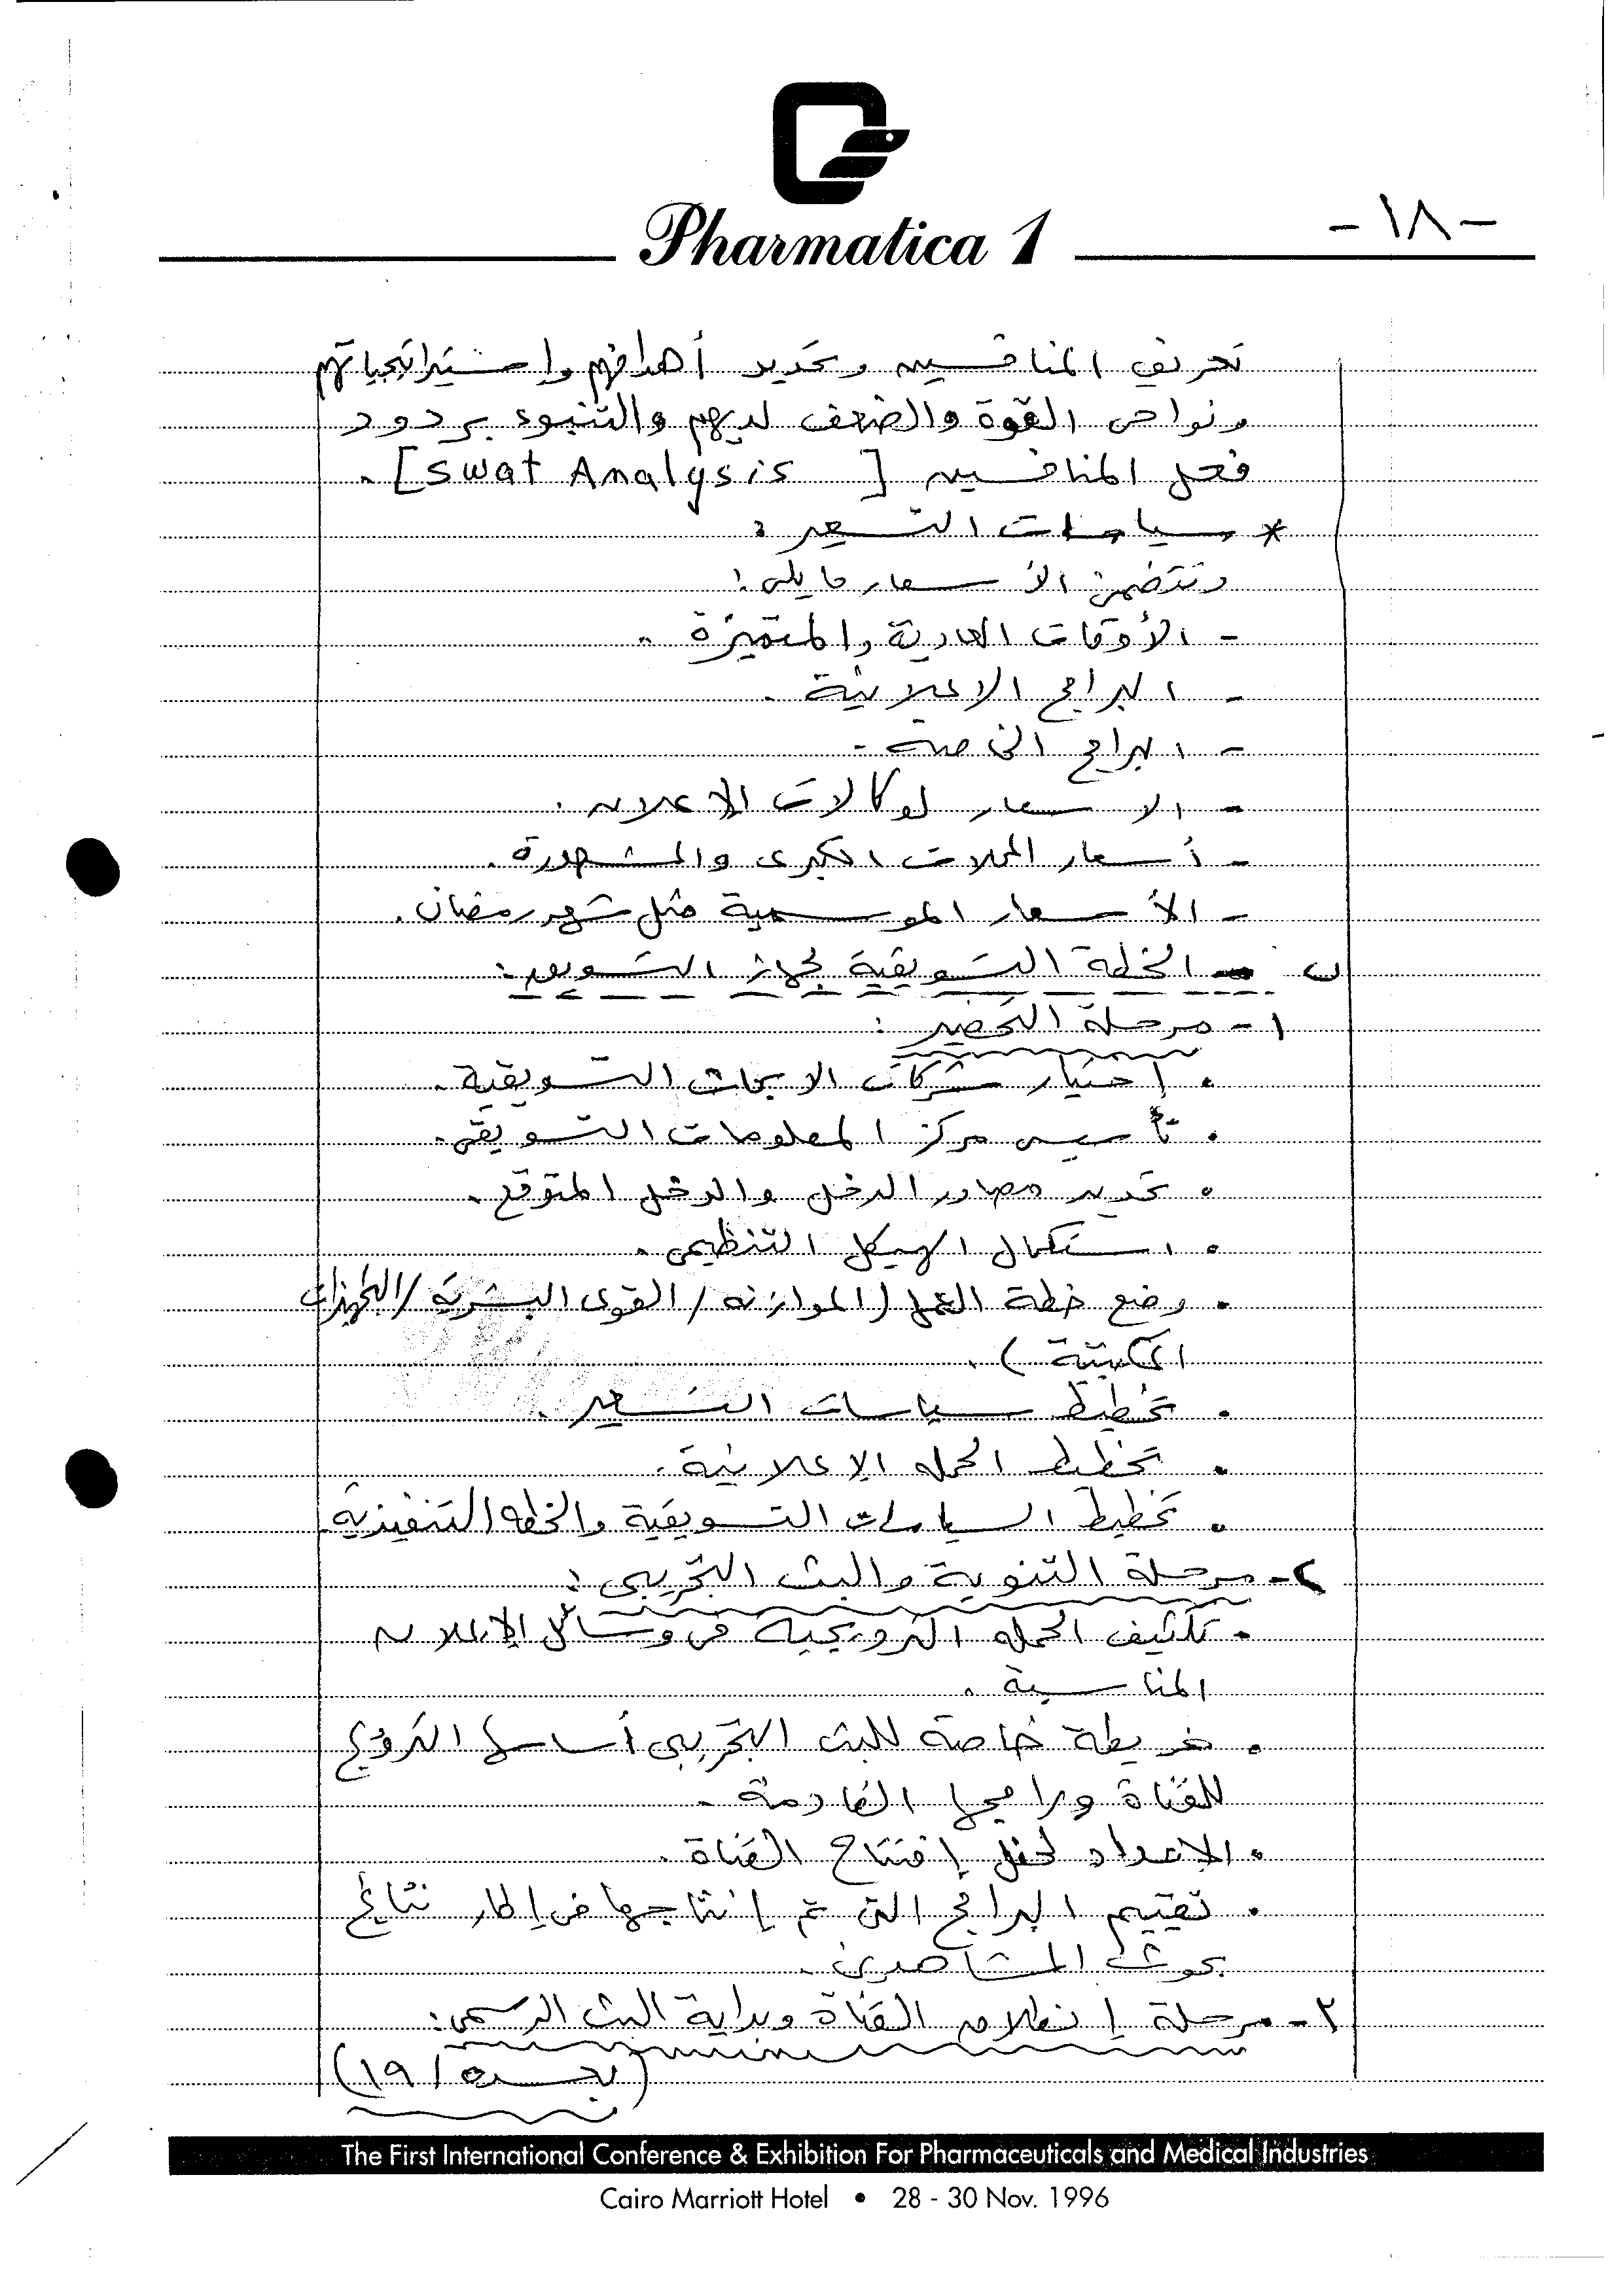 Pharmatica 1
- ١٨ -
تعريف المنافسين وتحديد أهدافهم وإستيراتيجياتهم
ونواحى القوة والضعف لديهم والتنبوء بردود
فعل المنافسين [ swat Analysis ] .
* سياسات التسعير :
وتتضمن الأسعار ما يلى :
- الأوقات العادية والمتميزة .
- البرامج الاعلانية .
- البرامج الخاصه .
- الاسعار لوكالات الإعلان .
- أسعار المحلات الكبرى والمشهورة .
- الأسعار الموسمية مثل شهر رمضان .
ب - الخطة التسويقية لجهاز التسويق :
١ - مرحلة التحضير :
• إختيار شركات الابحاث التسويقية .
• تأسيس مركز المعلومات التسويقى .
• تحديد مصادر الدخل والدخل المتوقع .
• استكمال الهيكل التنظيمى .
• وضع خطة العمل (الموازنه / القوى البشرية / التجهيزات
المكتبية ) .
• تخطيط سياسات التسعير .
• تخطيط الحمله الإعلانية .
• تخطيط السياسات التسويقية والخطه التنفيذية
٢ - مرحلة التنوية والبث التجريبى :
• تكثيف الحمله الترويجية فى وسائل الإعلان
المناسبة .
• خريطة خاصة للبث التجريبى أساسها الترويج
للقناة وبرامجها القادمة .
• الإعداد لحفل إفتتاح القناة .
• تقييم البرامج التى تم إنتاجها فى إطار نتائج
بحوث المشاهدين .
٣ - مرحلة إنطلاق القناة وبداية البث الرسمى :
( ١٩ /
The First International Conference & Exhibition For Pharmaceuticals and Medical Industries
Cairo Marriott Hotel • 28 - 30 Nov. 1996